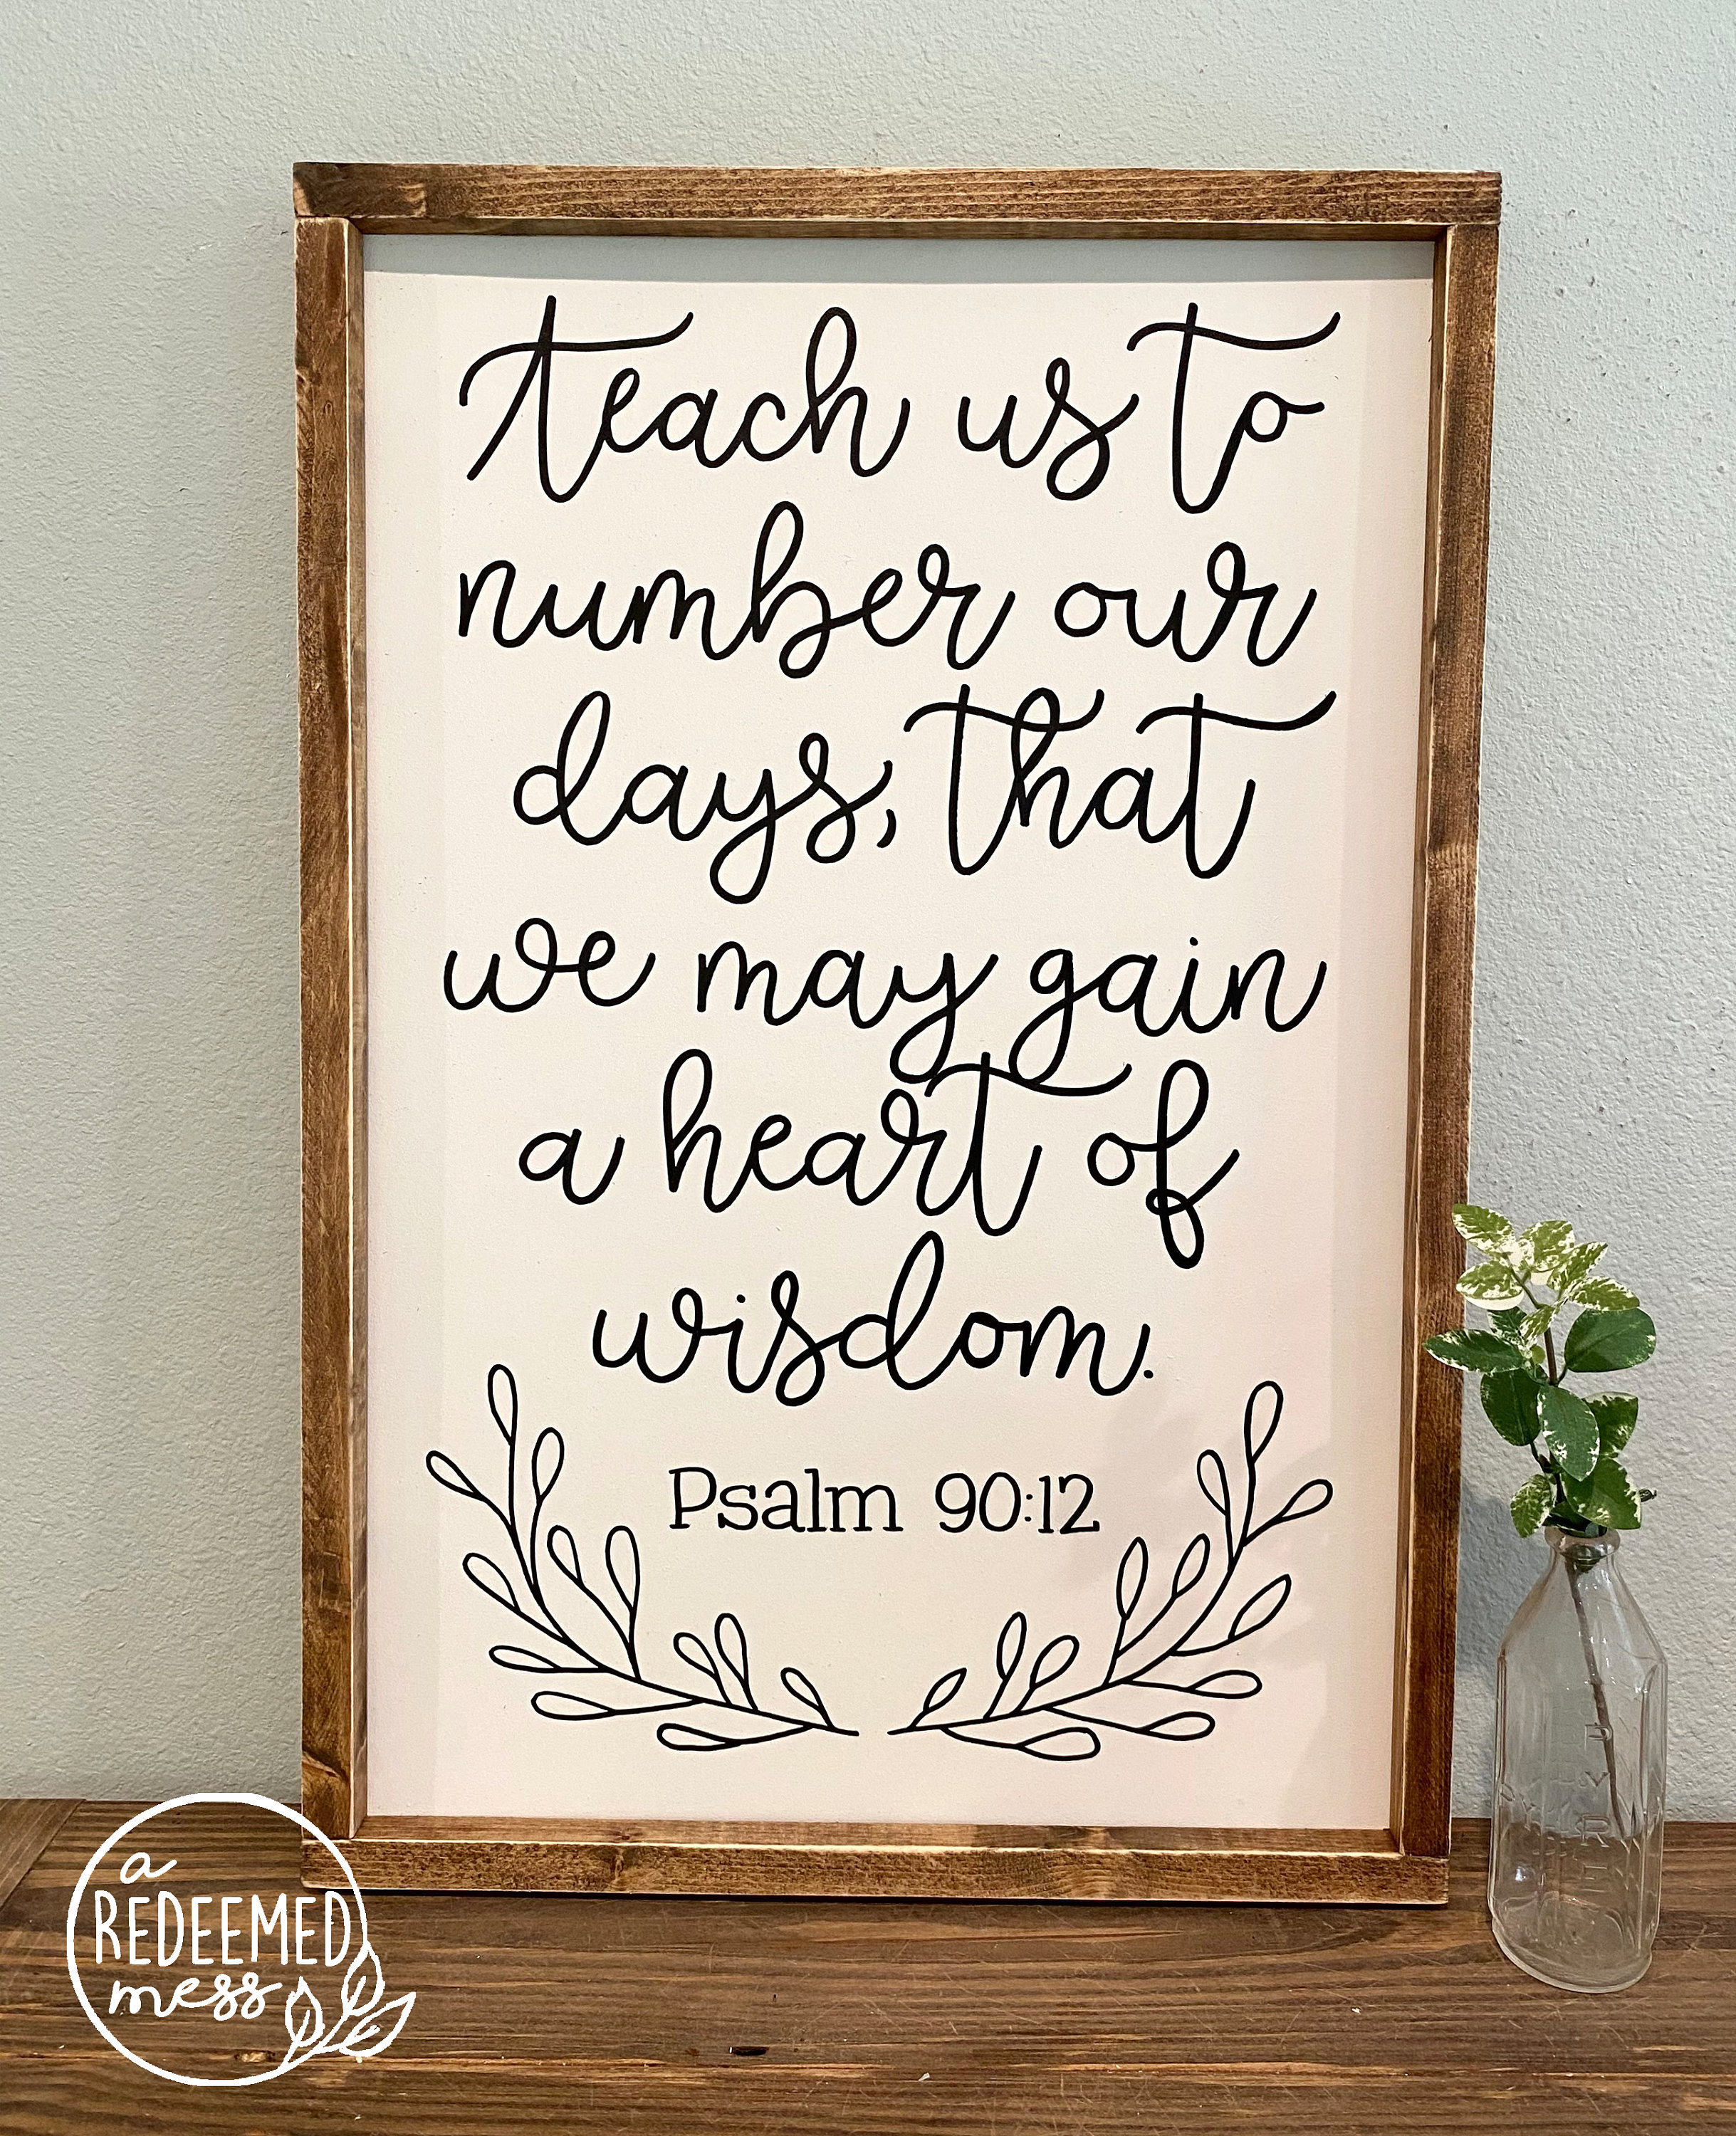 teach us to
number our
days, that
we may gain
a heart of
wisdom.
Psalm 90:12
a
REDEEMED
mess